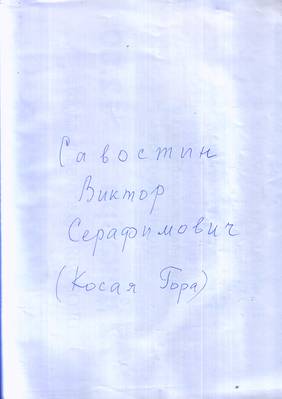 Савостин
Виктор
Серафимович
(Косая Гора)